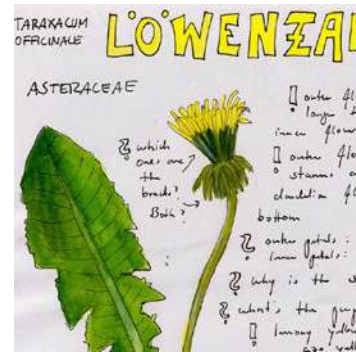 TARAXACUM
OFFICINALE
LÖWENZA
ASTERACEAE
? which
ones are
the
bracts?
Both?
! outer fl
longer
inner flower
! outer flo
stamens
dandelion f
bottom
? outer petals :
inner petals :
? why is the
? what's the
! lemony yell